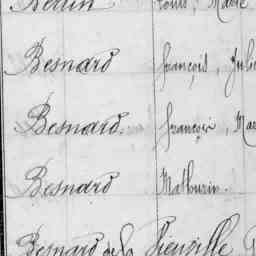 Louis, Marie
Besnard François, Juli
Besnard. François, Mar
Besnard Mathurin.
Besnard de la Vieuville